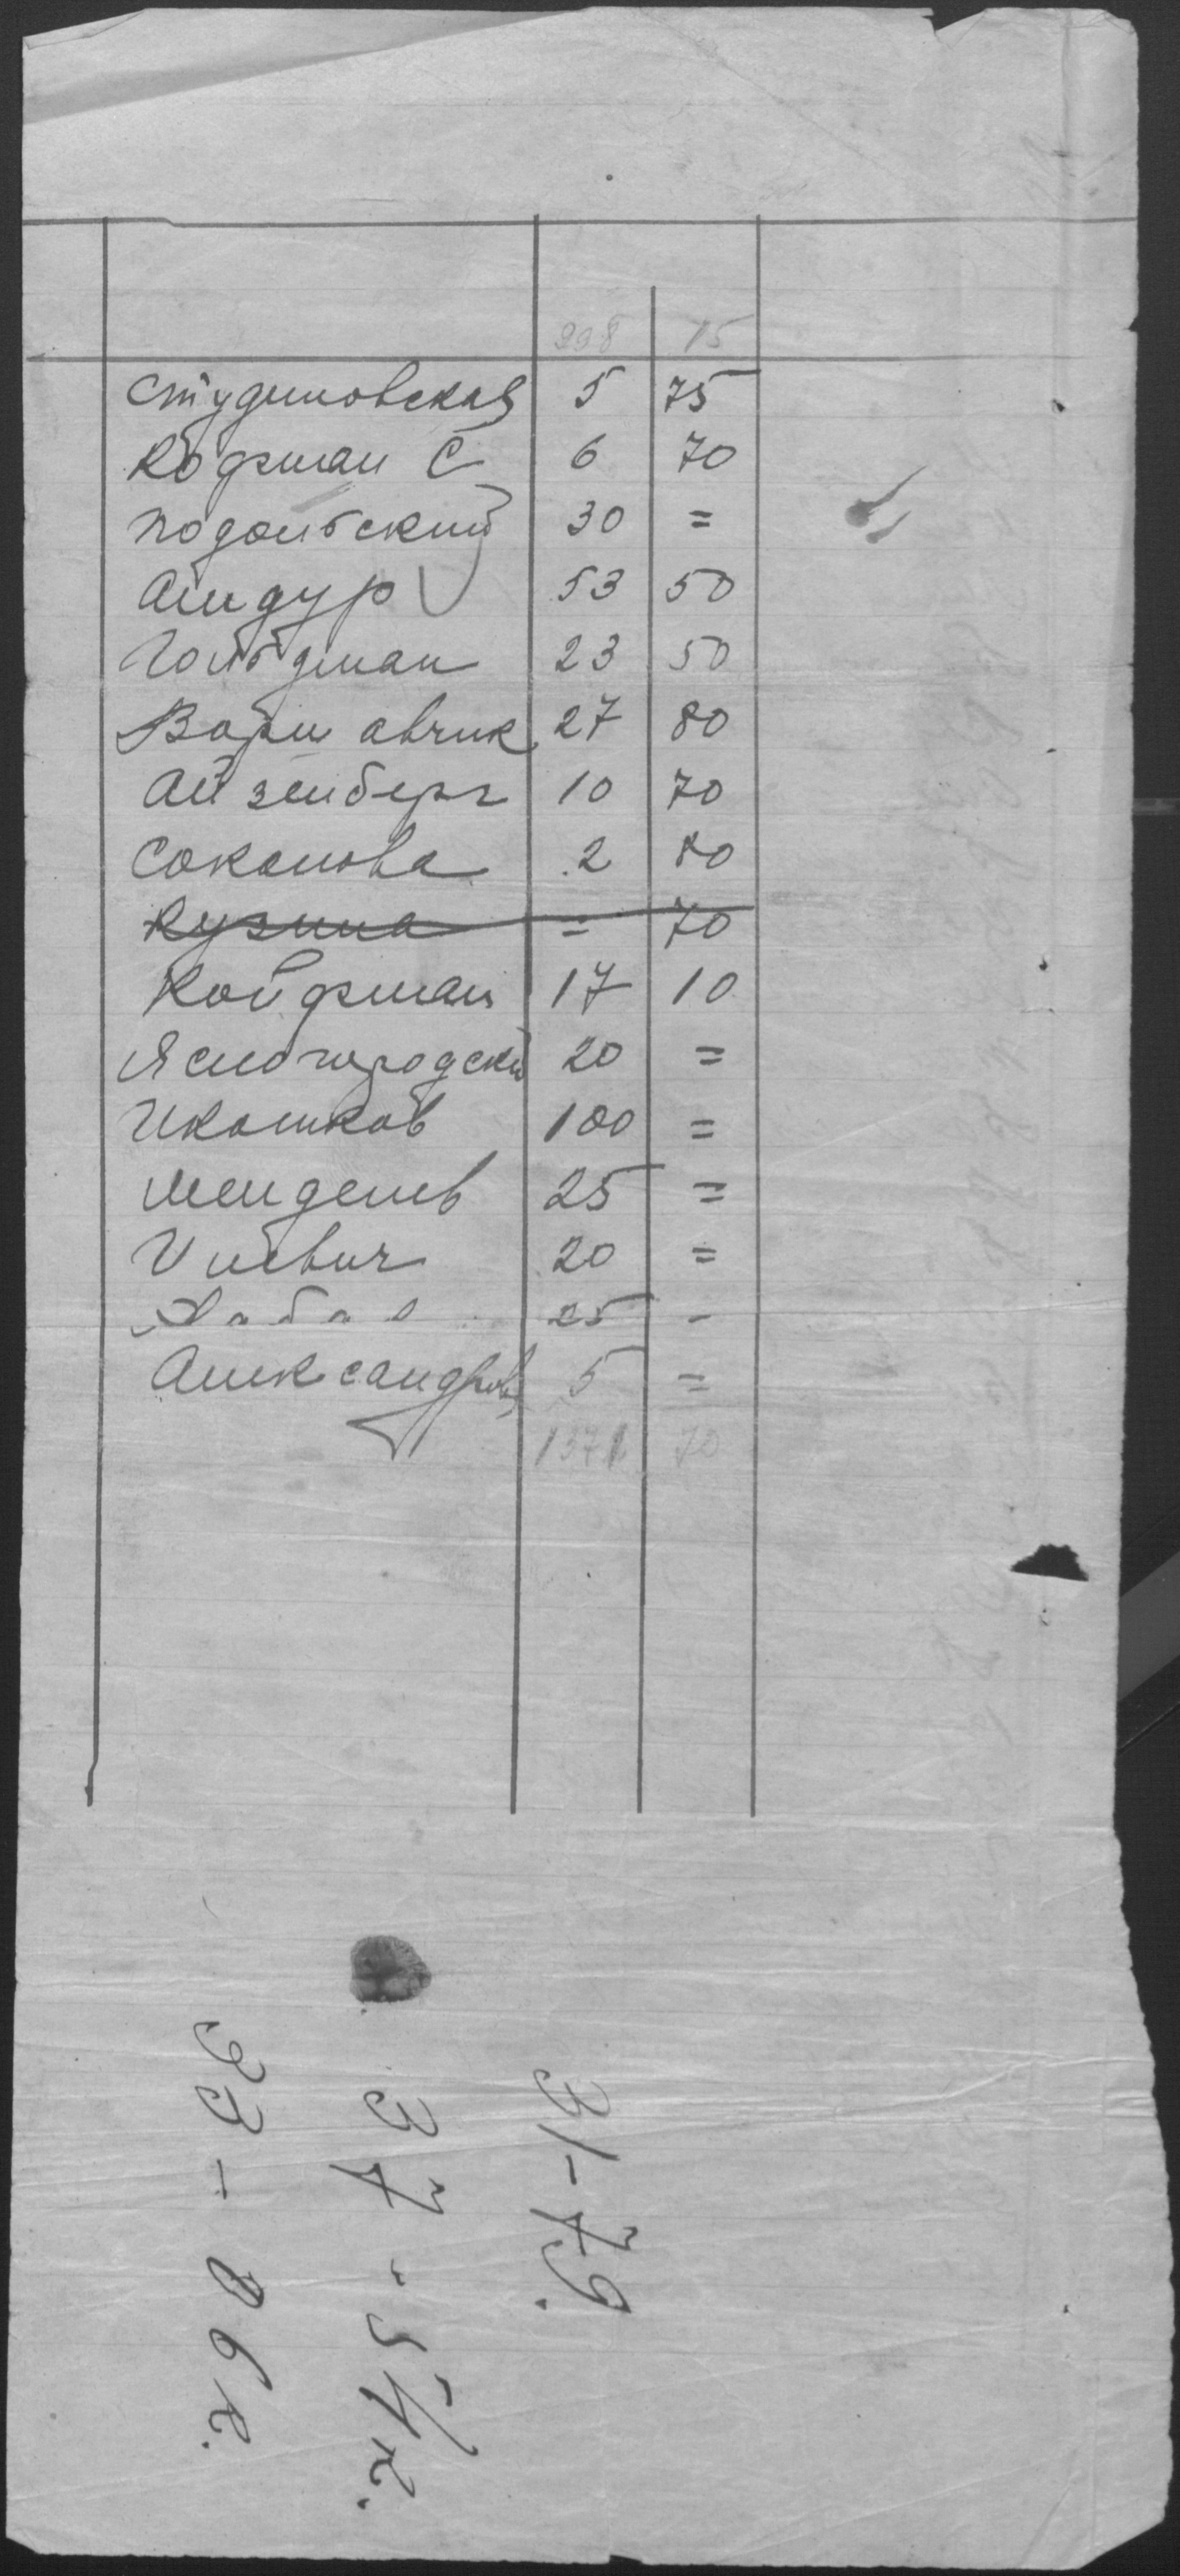 998 15
Студиновская 5 75
Кофман С 6 70
Подольский 30 =
Амдур 53 50
Гольдман 23 50
Варшавчик 27 80
Айзенберг 10 70
Соколова 2 80
Кузина = 70
Койфман 17 10
Ясногородский 20 =
Школьков 100 =
Мендель 25 =
Улевич 20 =
25 -
Александров 5 =
1371 70
31-79.
37 - 54к.
93 - 06к.